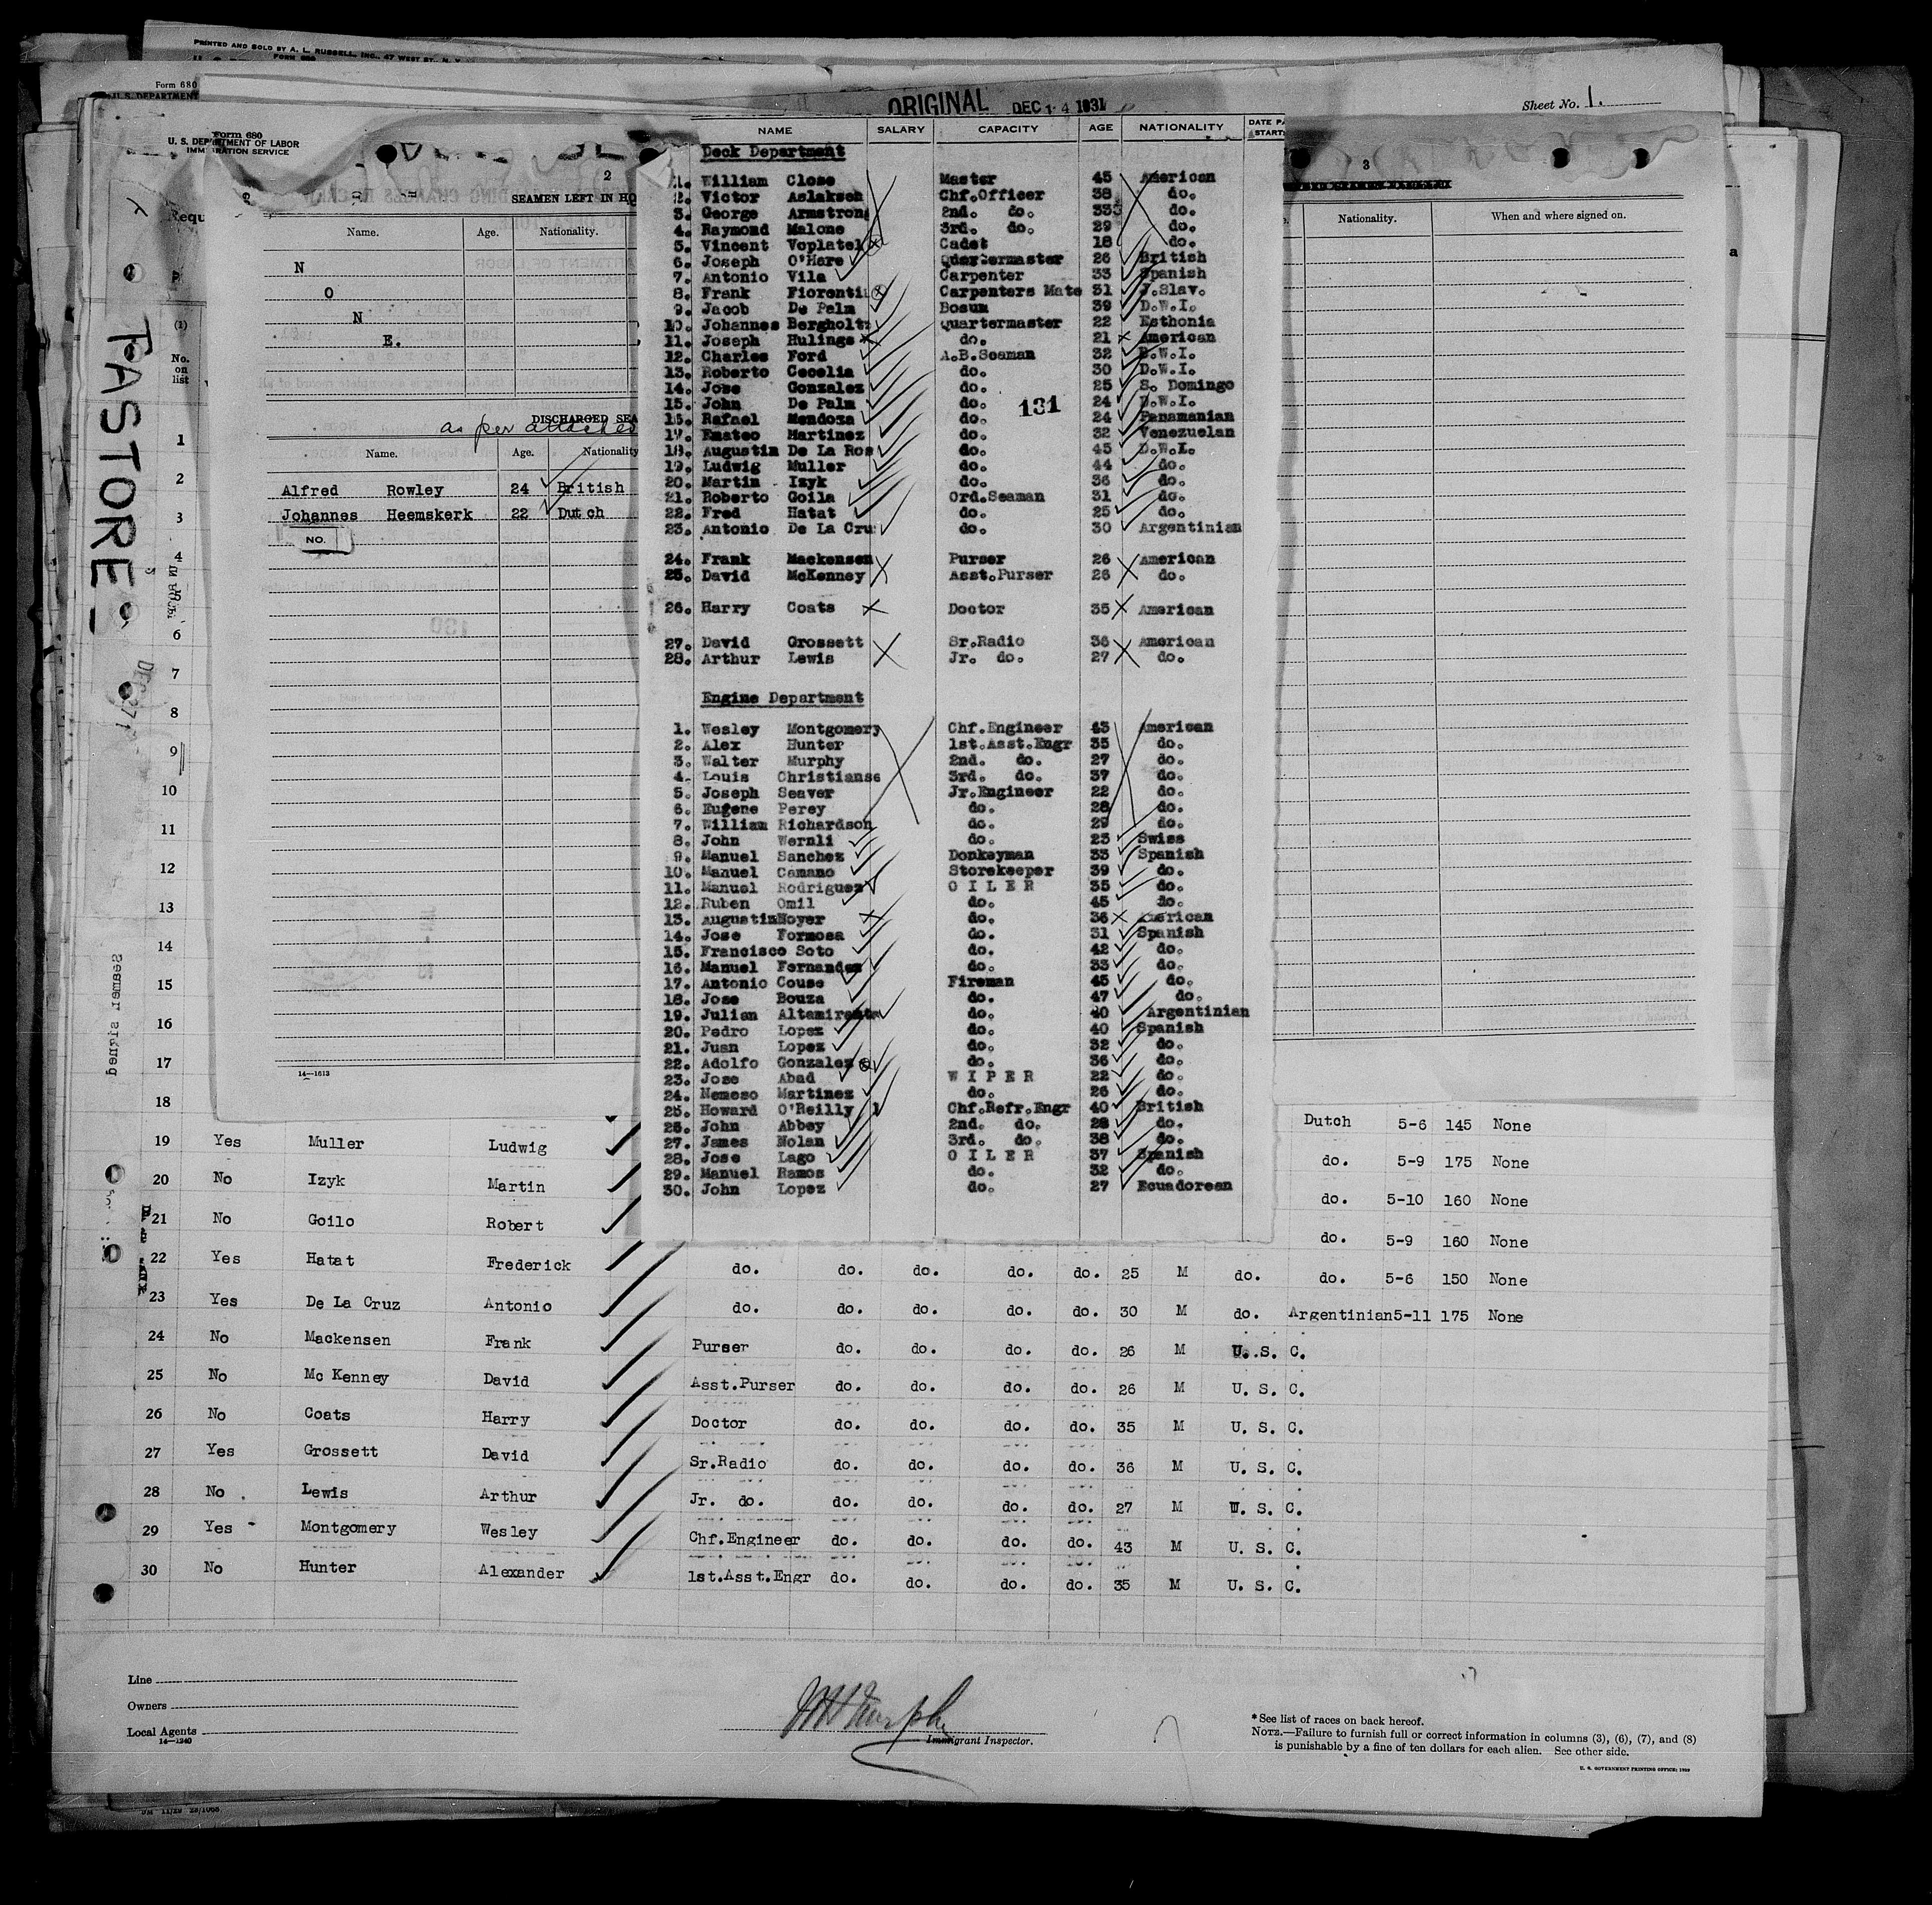 PRINTED AND SOLD BY A. L. RUSSELL, INC., 47 WEST ST., N. Y.
Form 680
U. S. DEPARTMENT
ORIGINAL DEC 14 1931
Sheet No. 1.
Form 680
U. S. DEPARTMENT OF LABOR
IMMIGRATION SERVICE
2
SEAMEN LEFT IN HO
Name. Age. Nationality.
N
O
N
E.
DISCHARGED SEA
as per attached
Name. Age. Nationality
Alfred Rowley 24 British
Johannes Heemskerk 22 Dutch
NO.
14—1613
PASTORES
NAME SALARY CAPACITY AGE NATIONALITY DATE PA STARTS
Deck Department
1. William Close Master 45 American
2. Victor Aslaksen Chf.Officer 38 do.
3. George Armstrong 2nd. do. 33 do.
4. Raymond Malone 3rd. do. 29 do.
5. Vincent Voplatel Cadet 18 do.
6. Joseph O'Hare Quartermaster 26 British
7. Antonio Vila Carpenter 33 Spanish
8. Frank Fiorenti Carpenters Mate 31 J.Slav.
9. Jacob De Palm Bosun 39 D.W.I.
10. Johannes Bergholtz Quartermaster 22 Esthonia
11. Joseph Hulings do. 21 American
12. Charles Ford A.B.Seaman 32 B.W.I.
13. Roberto Cecelia do. 30 D.W.I.
14. Jose Gonzalez do. 25 S. Domingo
15. John De Palm do. 24 D.W.I.
131
16. Rafael Mendoza do. 24 Panamanian
17. Emateo Martinez do. 32 Venezuelan
18. Augustin De La Ros do. 45 D.W.I.
19. Ludwig Muller do. 44 do.
20. Martin Izyk do. 36 do.
21. Roberto Goila Ord.Seaman 31 do.
22. Fred Hatat do. 25 do.
23. Antonio De La Cru do. 30 Argentinian
24. Frank Mackensen Purser 26 American
25. David McKenney Asst.Purser 26 do.
26. Harry Coats Doctor 35 American
27. David Grossett Sr.Radio 36 American
28. Arthur Lewis Jr. do. 27 do.
Engine Department
1. Wesley Montgomery Chf.Engineer 43 American
2. Alex Hunter 1st.Asst.Engr 35 do.
3. Walter Murphy 2nd. do. 27 do.
4. Louis Christianse 3rd. do. 37 do.
5. Joseph Seaver Jr.Engineer 22 do.
6. Eugene Perey do. 28 do.
7. William Richardson do. 29 do.
8. John Wernli do. 23 Swiss
9. Manuel Sanchez Donkeyman 33 Spanish
10. Manuel Camano Storekeeper 39 do.
11. Manuel Rodriguez OILER 35 do.
12. Ruben Omil do. 45 do.
13. Augustin Noyer do. 36 American
14. Jose Formosa do. 31 Spanish
15. Francisco Soto do. 42 do.
16. Manuel Fernandez do. 33 do.
17. Antonio Couse Fireman 45 do.
18. Jose Bouza do. 47 do.
19. Julian Altamiranta do. 40 Argentinian
20. Pedro Lopez do. 40 Spanish
21. Juan Lopez do. 32 do.
22. Adolfo Gonzalez do. 36 do.
23. Jose Abad WIPER 22 do.
24. Nemeso Martinez do. 26 do.
25. Howard O'Reilly Chf.Refr.Engr 40 British
26. John Abbey 2nd. do. 28 do.
27. James Nolan 3rd. do. 38 do.
28. Jose Lago OILER 37 Spanish
29. Manuel Ramos do. 32 do.
30. John Lopez do. 27 Ecuadorean
3
Nationality. When and where signed on.
Requ
(1)
No. on list
1
2
3
4
5
6
7
8
9
10
11
12
13
14
15
16
17
18
Dutch 5-6 145 None
19 Yes Muller Ludwig do. 5-9 175 None
20 No Izyk Martin do. 5-10 160 None
21 No Goilo Robert do. 5-9 160 None
22 Yes Hatat Frederick do. do. do. do. do. 25 M do. do. 5-6 150 None
23 Yes De La Cruz Antonio do. do. do. do. do. 30 M do. Argentinian 5-11 175 None
24 No Mackensen Frank Purser do. do. do. do. 26 M U. S. C.
25 No Mc Kenney David Asst.Purser do. do. do. do. 26 M U. S. C.
26 No Coats Harry Doctor do. do. do. do. 35 M U. S. C.
27 Yes Grossett David Sr.Radio do. do. do. do. 36 M U. S. C.
28 No Lewis Arthur Jr. do. do. do. do. do. 27 M U. S. C.
29 Yes Montgomery Wesley Chf.Engineer do. do. do. do. 43 M U. S. C.
30 No Hunter Alexander 1st.Asst.Engr do. do. do. do. 35 M U. S. C.
Line
Owners
Local Agents
14—1240
Immigrant Inspector.
* See list of races on back hereof.
NOTE.—Failure to furnish full or correct information in columns (3), (6), (7), and (8)
is punishable by a fine of ten dollars for each alien. See other side.
U. S. GOVERNMENT PRINTING OFFICE: 1929